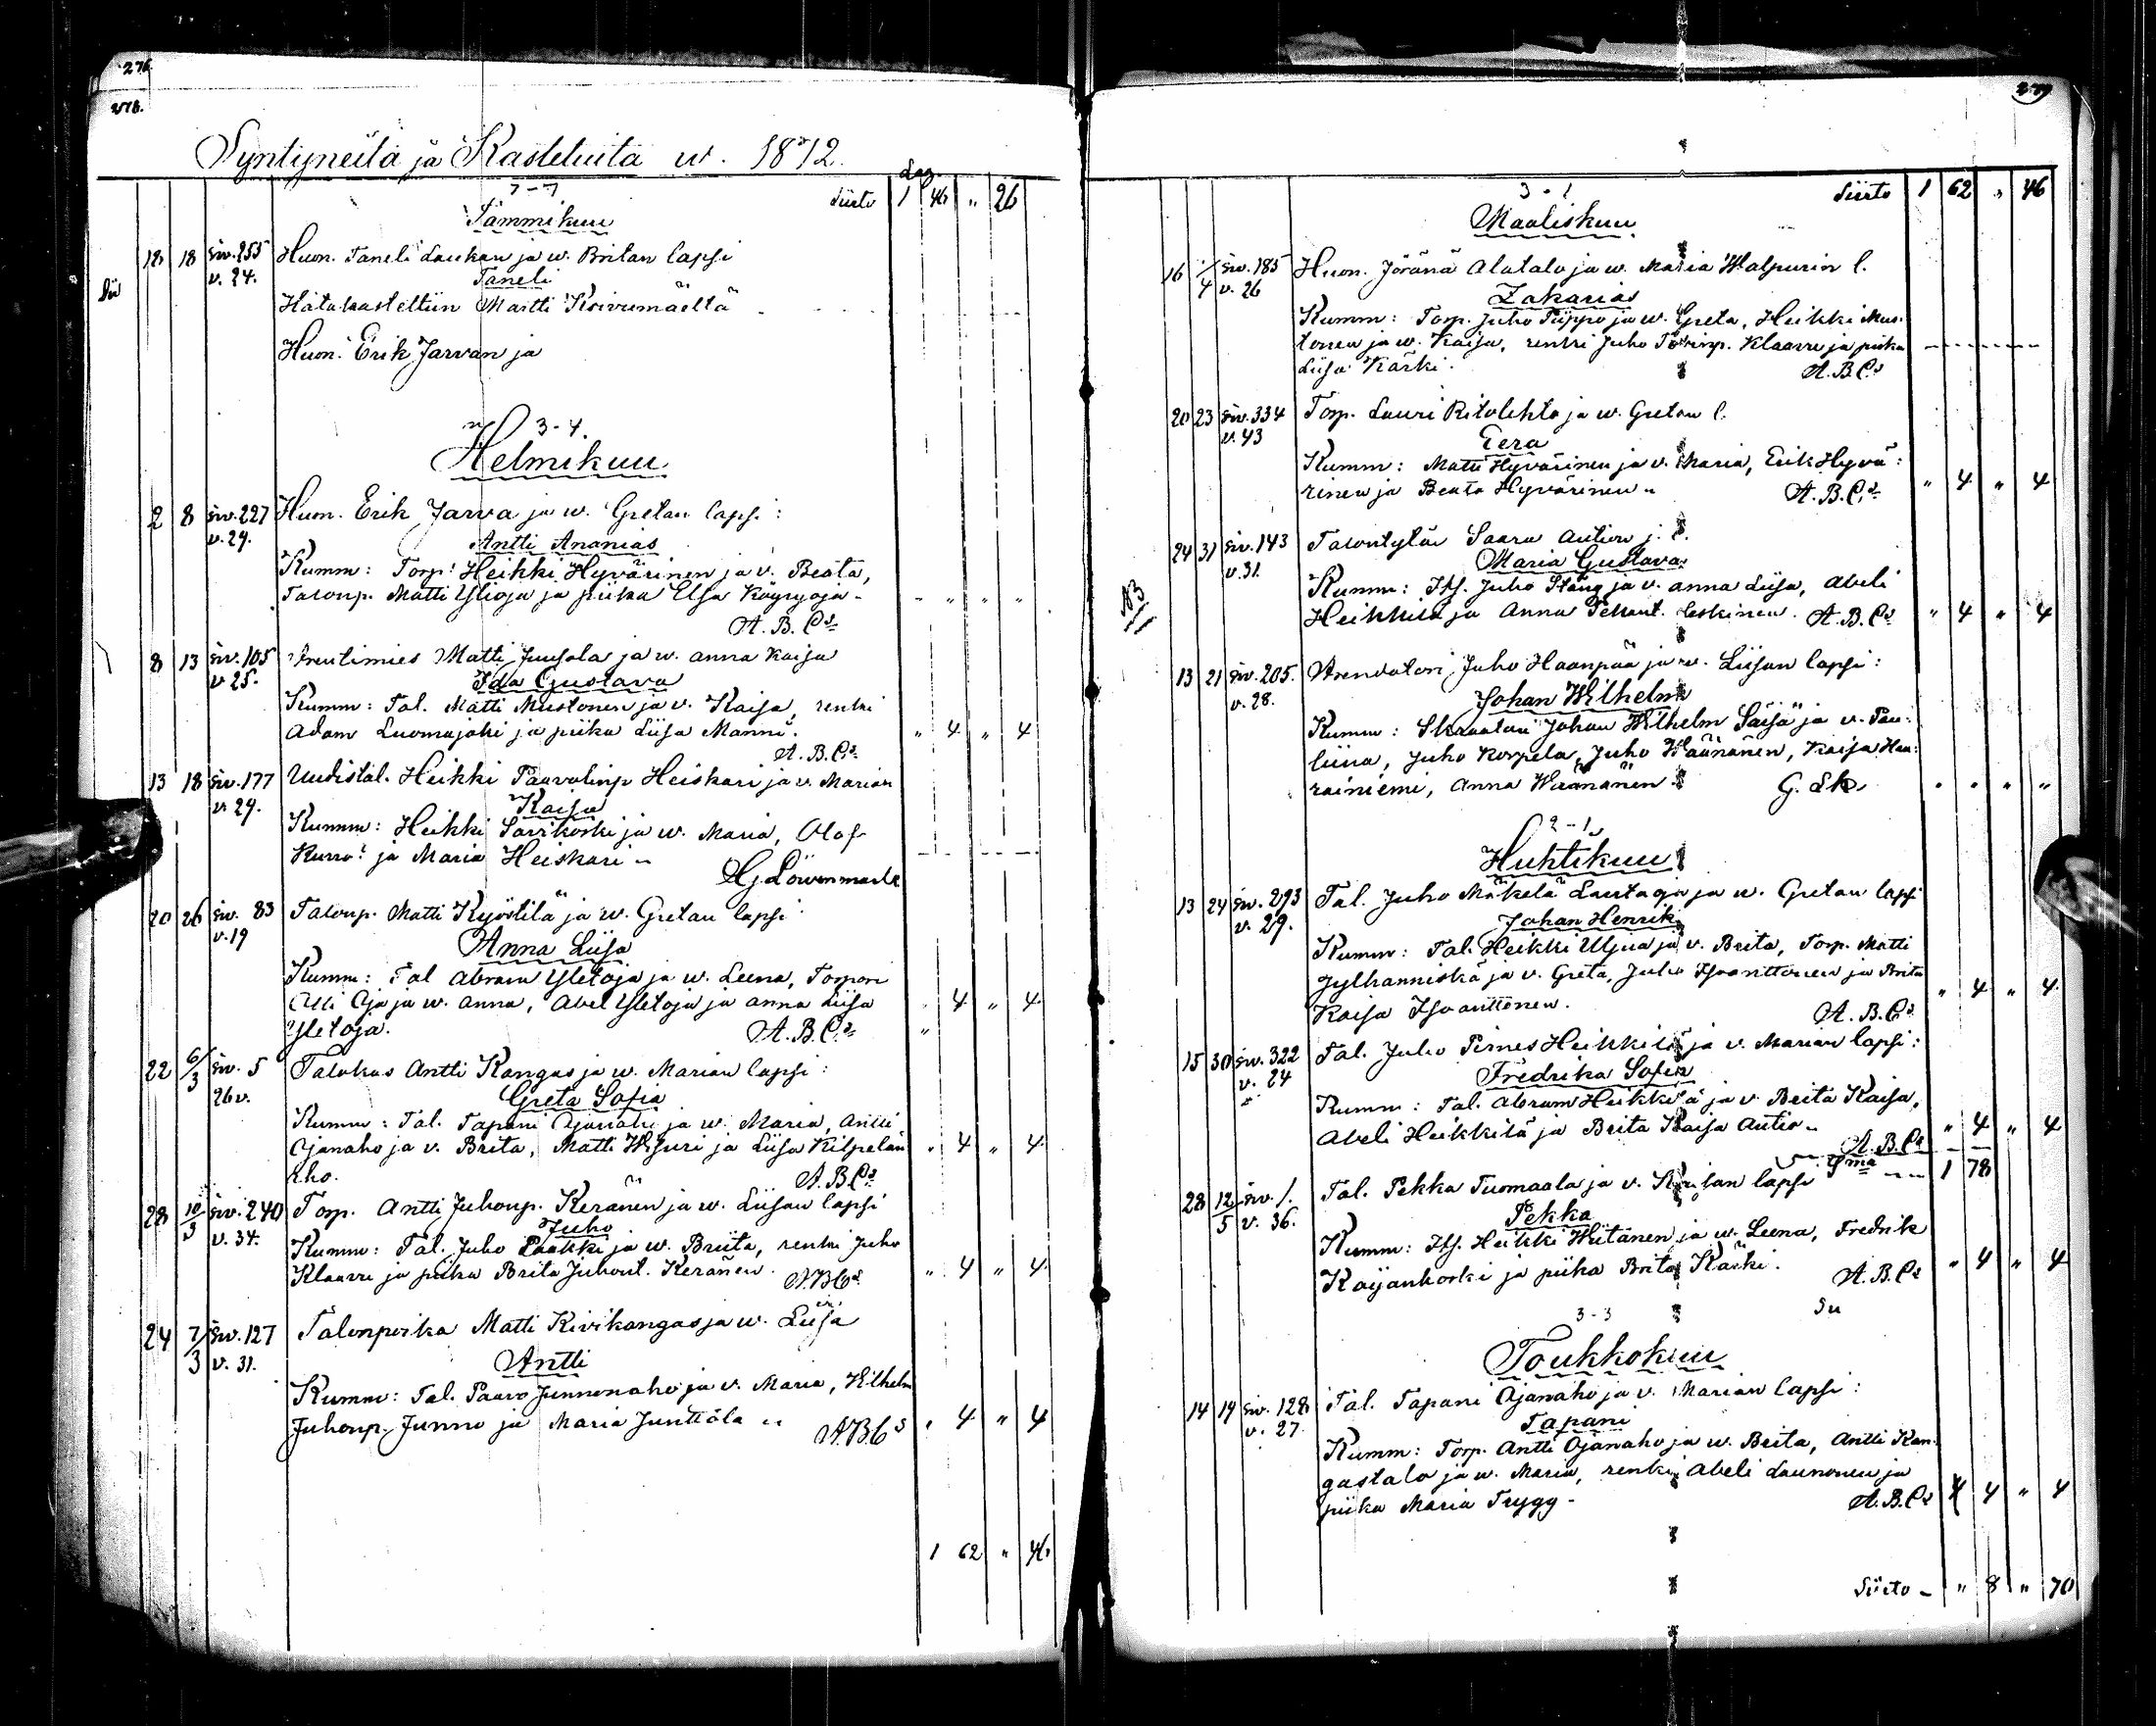 276
278.
Syntyneitä ja Kasteluita w. 1872.
7-7
Siirto 1 46 " 26
Tammikuu
18 18 siv. 255 Huon. Taneli Laukan ja w. Britan lapsi
v. 24. Taneli
Hätäkastettiin Martti Koivumäeltä
Huon. Erik Jarvan ja
3-4.
Helmikuu
2 8 siv. 227 Huon. Erik Jarva ja w. Gretan lapsi:
v. 29. Antti Ananias
Kumm: Torp. Heikki Hyvärinen ja v. Beata,
Talonp. Matti Ylioja ja piika Elsa Köyryoja -
A. B. Cs
8 13 siv. 105 Arentimies Matti Juusola ja w. Anna Kaisa
v 25. Ida Gustava
Kumm: Tal. Matti Mustonen ja v. Kaisa, renki
Adam Luomajoki ja piika Liisa Manni. " 4 " 4
A. B. Cs
13 18 siv. 177 Uudistal. Heikki Paavalinp Heiskari ja v. Marian
v. 29. Kaisa
Kumm: Heikki Sarikoski ja w. Maria, Olof
Kurra ja Maria Heiskari "
G. Löwenmark
20 26 siv. 83 Talonp. Matti Kyöstilä ja w. Gretan lapsi:
v. 19 Anna Liisa
Kumm: Tal Abram Yletoja ja w. Leena, Torpari
Olli Oja ja w. Anna, Abel Yletoja ja Anna Liisa " 4 " 4
Yletoja. A. B. Cs
22 6/3 siv. 5 Talokas Antti Kangas ja w. Marian lapsi:
26 v. Greta Sofia
Kumm: Tal. Tapani Ojanaho ja w. Maria, Antti
Ojanaho ja v. Brita, Matti Wisuri ja Liisa Kilpelän " 4 " 4
aho. A. B. Cs
28 10/3 siv. 240 Torp. Antti Juhonp. Keränen ja w. Liisan lapsi
v. 34. Juho
Kumm: Tal. Juho Paakki ja w. Briita, renki Juho
Klaavu ja piika Brita Juhont. Keränen. A. B. Cs " 4 " 4
24 7/3 siv. 127 Talonpoika Matti Kivikangas ja w. Liisa
v. 31. Antti
Kumm: Tal. Paavo Junnonaho ja v. Maria, Wilhelm
Juhonp. Junno ja Maria Junttola " A. B. Cs " 4 " 4
1 62 " 46
279
3-1
Siirto 1 62 " 46
Maaliskuu
16 1/4 siv. 185 Huon. Jöränä Alatalo ja w. Maria Walpurin l.
v. 26 Zakarias
Kumm: Torp. Juho Piippo ja w. Greta, Heikki Mus-
tonen ja w. Kaisa, renki Juho Klaavu ja piika
Liisa Kärki. A. B. Cs
20 23 siv. 334 Torp. Lauri Ritolehto ja w. Gretan l.
v. 43 Eera
Kumm: Matti Hyvärinen ja v. Maria, Erik Hyvä:
rinen ja Beata Hyvärinen " A. B. Cs " 4 " 4
24 31 siv. 143 Talontytär Saara Aution j. l.
v. 31. Maria Gustava
Kumm: Its. Juho Stång ja v. Anna Liisa, Abeli
Heikkilä ja Anna Pekant. Leskinen. A. B. Cs " 4 " 4
13 21 siv. 205. Arendatori Juho Haanpää ja w. Liisan lapsi:
v. 28. Johan Wilhelm
Kumm: Skraatari Johan Wilhelm Säisä ja v. Pau:
liina, Juho Korpela, Juho Wäänänen, Kaisa Haa:
rainiemi, Anna Wäänänen. G. Ek
2-1
Huhtikuu
13 24 siv. 293 Tal. Juho Mäkelä Lautaga ja w. Gretan lapsi
v. 29. Johan Henrik
Kumm: Tal. Heikki Uljua ja v. Brita, Torp. Matti
Jylhanniska ja v. Greta, Juho Isoanttonen ja Brita
Kaisa Isoanttonen. A. B. Cs " 4 " 4
15 30 siv. 322 Tal. Juho Pirnes Heikkilä ja v. Marian lapsi:
v. 24 Fredrika Sofia
Kumm: Tal. Abram Heikkilä ja v. Beita Kaisa,
Abeli Heikkilä ja Brita Kaisa Autio " " 4 " 4
A. B. Cs
Sma 1 78
28 12/5 siv. 1. Tal. Pekka Tuomaala ja v. lapsi
v. 36. Pekka
Kumm: Its. Heikki Wiitanen ja w. Leena, Fredrik
Koijankoski ja piika Brita Kärki. A. B. Cs " 4 " 4
3-3
Toukkokuu
14 19 siv. 128 Tal. Tapani Ojanaho ja v. Marian lapsi:
v. 27. Tapani
Kumm: Torp. Antti Ojanaho ja w. Brita, Antti Kan-
gastalo ja w. Maria, renki Abeli Launonen ja
piika Maria Trygg - A. B. Cs 4 " 4
Siirto - " 8 " 70